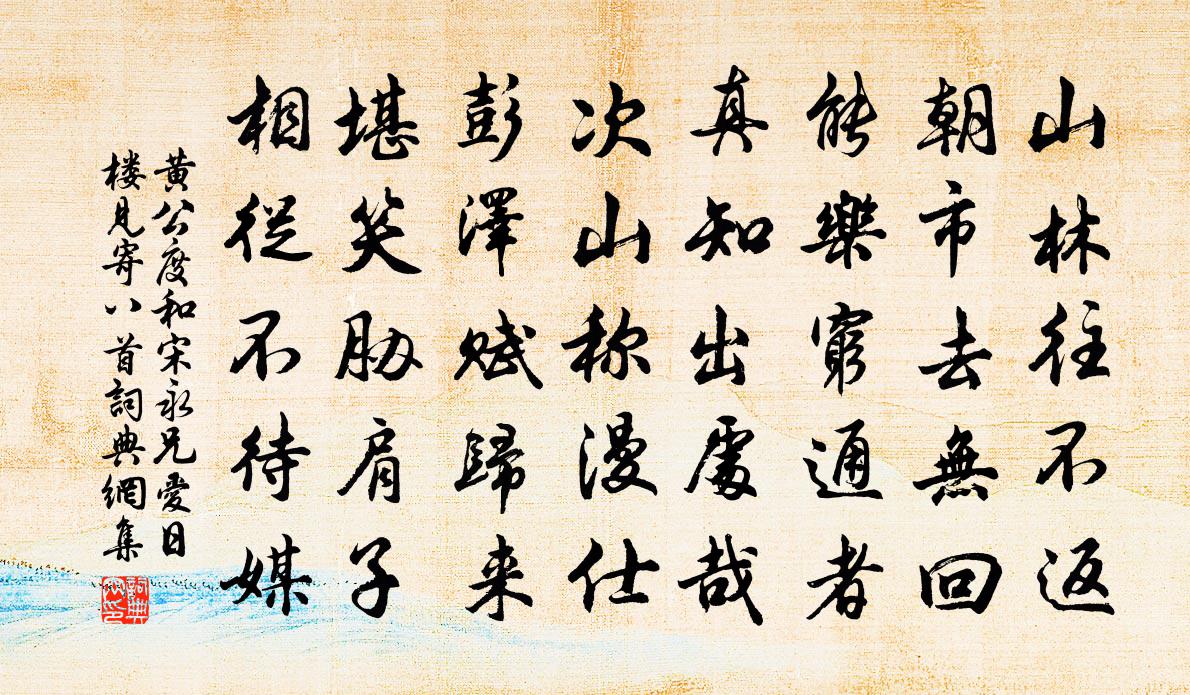 山林往不返
朝市去無回
能樂窮通者
真知出處哉
次山称漫仕
彭澤賦歸来
堪笑胁肩子
相從不待媒
黄公度和宋永兄愛日
楼見寄八首詞典網集